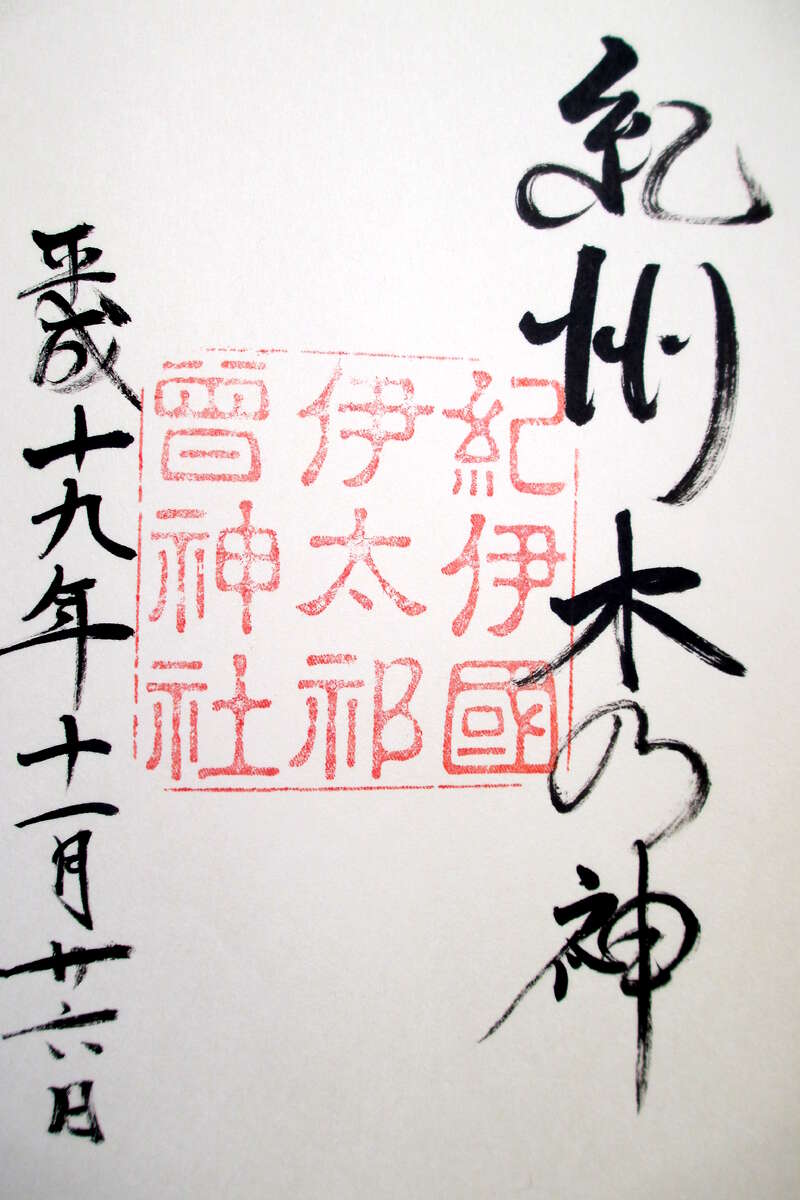 紀州木乃神
紀伊國
伊太祁
曾神社
平成十九年十一月廿六日